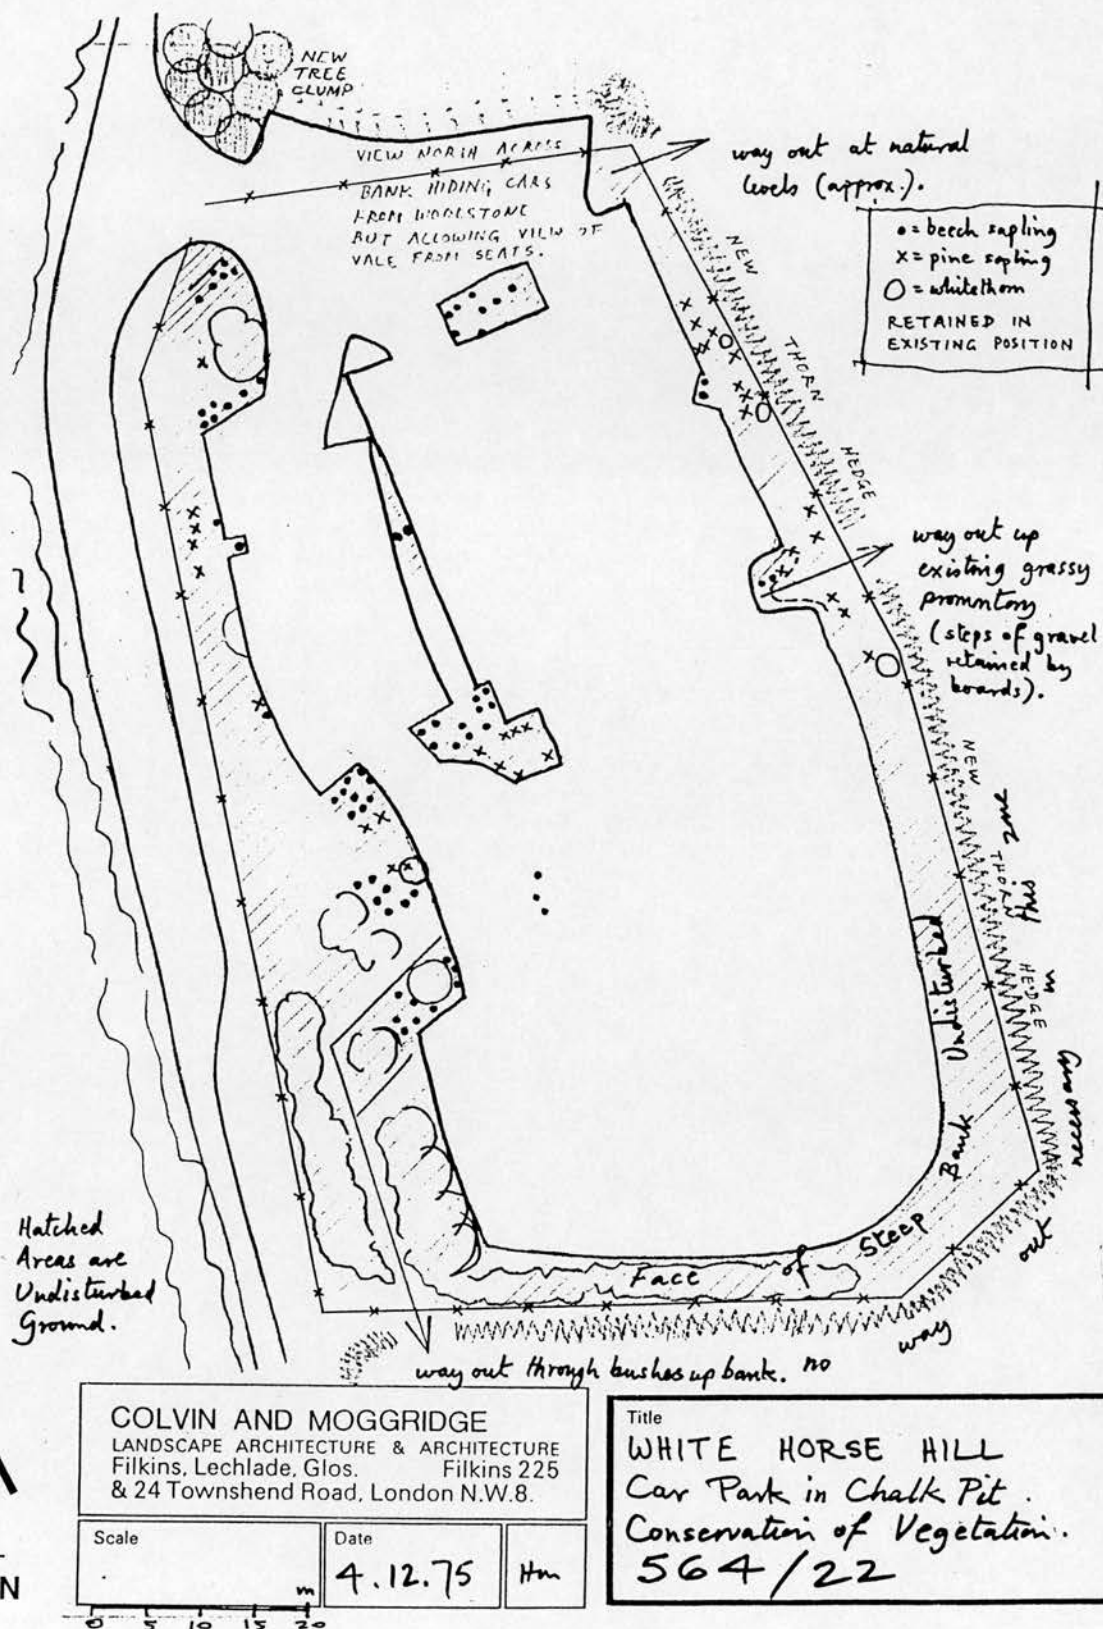 NEW
TREE
CLUMP
VIEW NORTH ACROSS
BANK HIDING CARS
FROM WOOLSTONE
BUT ALLOWING VIEW OF
VALE FROM SEATS.
way out at natural
levels (approx.).
• = beech sapling
x = pine sapling
O = whitethorn
RETAINED IN
EXISTING POSITION
NEW THORN HEDGE
way out up
existing grassy
promontory
(steps of gravel
retained by
boards).
NEW THORN HEDGE
Face of Steep Bank Undisturbed
no way out necessary in this zone
Hatched
Areas are
Undisturbed
Ground.
way out through bushes up bank.
COLVIN AND MOGGRIDGE
LANDSCAPE ARCHITECTURE & ARCHITECTURE
Filkins, Lechlade, Glos. Filkins 225
& 24 Townshend Road, London N.W.8.
Scale
m
Date
4.12.75
Hm
Title
WHITE HORSE HILL
Car Park in Chalk Pit.
Conservation of Vegetation.
564/22
N
0 5 10 15 20